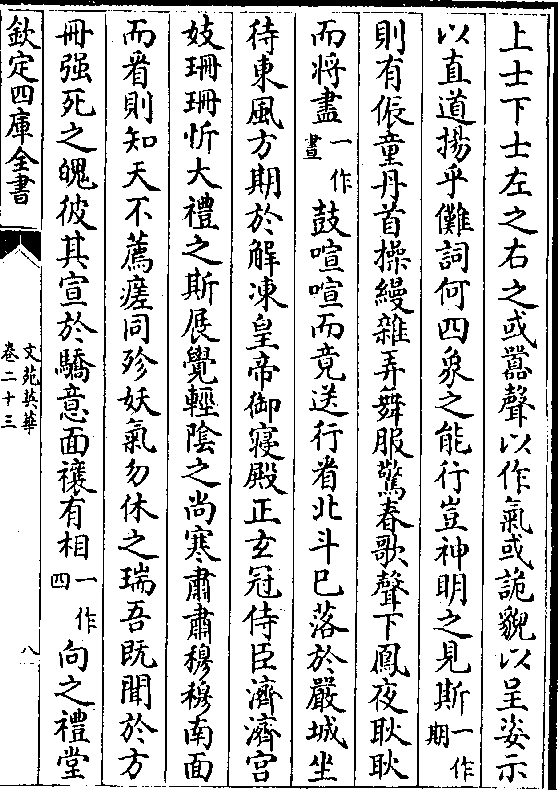 上士下士左之右之或囂聲以作氣或詭貌以呈姿示
以直道揚乎儺詞何四𧰼之能行豈神明之見斯一作期
則有侲童丹首操縵雜弄舞服驚春歌聲下鳳夜耿耿
而將盡一作晝鼓喧喧而竟送行看北斗已落於嚴城坐
待東風方期於解凍皇帝御寝殿正玄冠侍臣濟濟宫
妓珊珊忻大禮之斯展覺輕陰之尚寒肅肅穆穆南面
而看則知天不薦瘥同殄妖氣勿休之瑞吾既聞於方
冊强死之魄彼其宣於驕意面禳有相一作四向之禮堂
欽定四庫全書
文苑英華
卷二十三
八